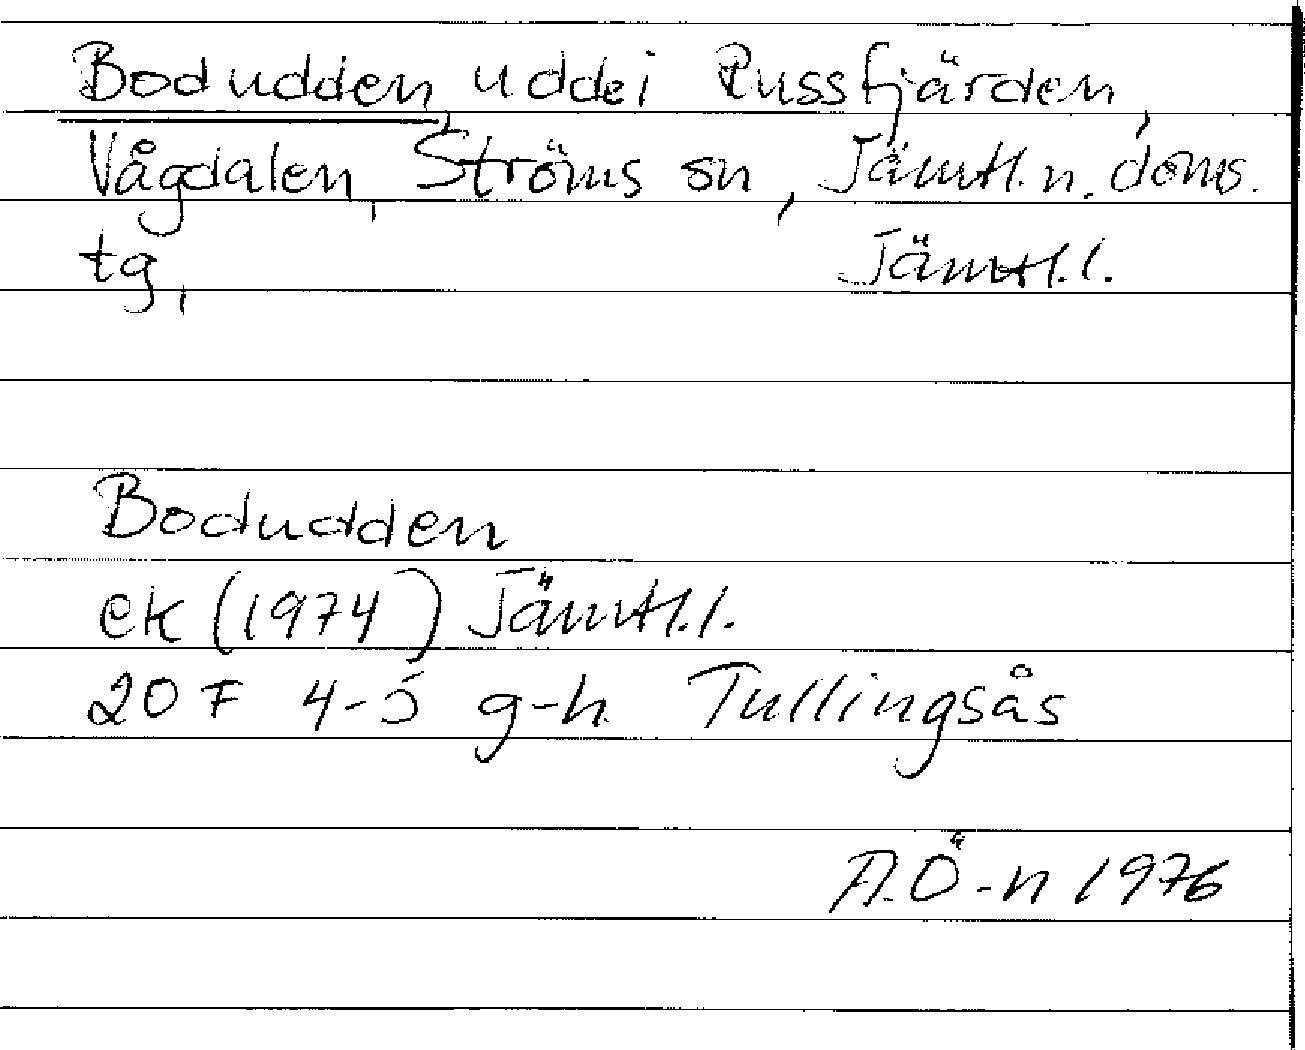 Bodudden, udde i Russfjärden,
Vågdalen, Ströms sn, Jämtl. n. doms.
tg, Jämtl. l.
Bodudden
ek (1974) Jämtl. l.
20 F 4-5 g-h Tullingsås
A.Ö-n 1976